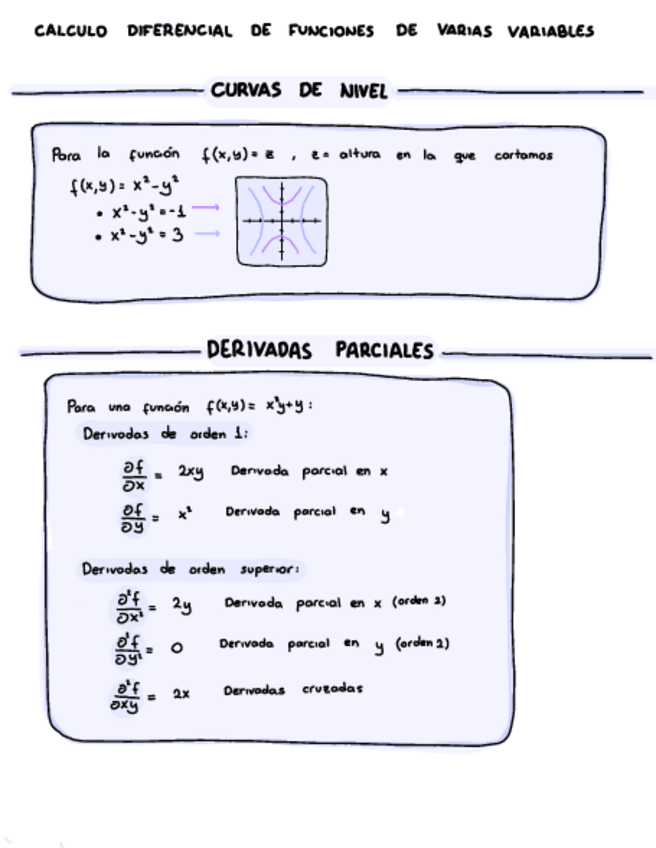 CALCULO DIFERENCIAL DE FUNCIONES DE VARIAS VARIABLES
CURVAS DE NIVEL
Para la función f(x,y) = z , z = altura en la que cortamos
f(x,y) = x² - y²
• x² - y² = -1
• x² - y² = 3
DERIVADAS PARCIALES
Para una función f(x,y) = x²y + y :
Derivadas de orden 1:
∂f/∂x = 2xy Derivada parcial en x
∂f/∂y = x² Derivada parcial en y
Derivadas de orden superior:
∂²f/∂x² = 2y Derivada parcial en x (orden 2)
∂²f/∂y² = 0 Derivada parcial en y (orden 2)
∂²f/∂xy = 2x Derivadas cruzadas